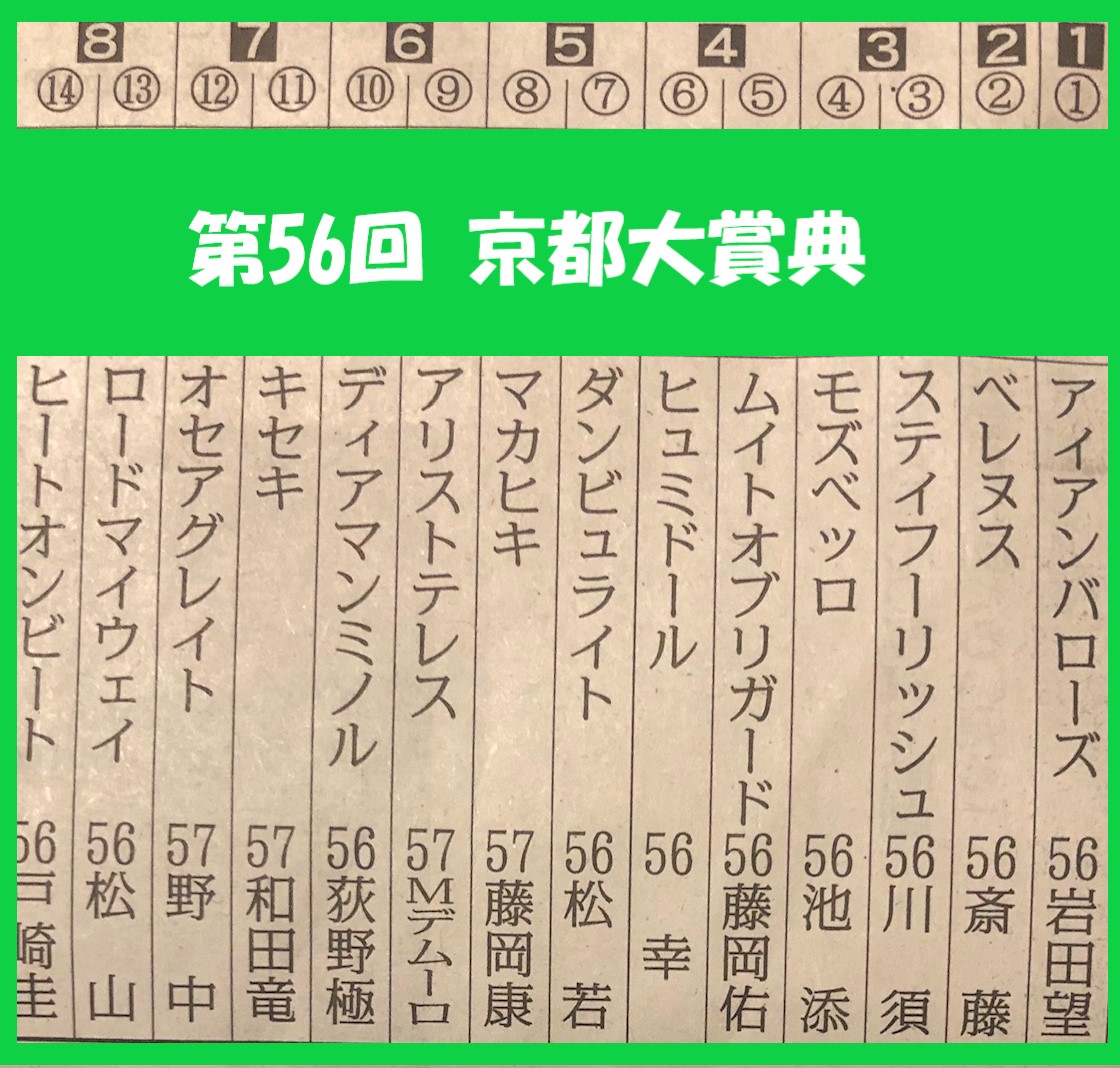 1 2 3 4 5 6 7 8
① ② ③ ④ ⑤ ⑥ ⑦ ⑧ ⑨ ⑩ ⑪ ⑫ ⑬ ⑭
第56回 京都大賞典
アイアンバローズ 56 岩田望
ベレヌス 56 斎藤
ステイフーリッシュ 56 川須
モズベッロ 56 池添
ムイトオブリガード 56 藤岡佑
ヒュミドール 56 幸
ダンビュライト 56 松若
マカヒキ 57 藤岡康
アリストテレス 57 Mデムーロ
ディアマンミノル 56 荻野極
キセキ 57 和田竜
オセアグレイト 57 野中
ロードマイウェイ 56 松山
ヒートオンビート 56 戸崎圭